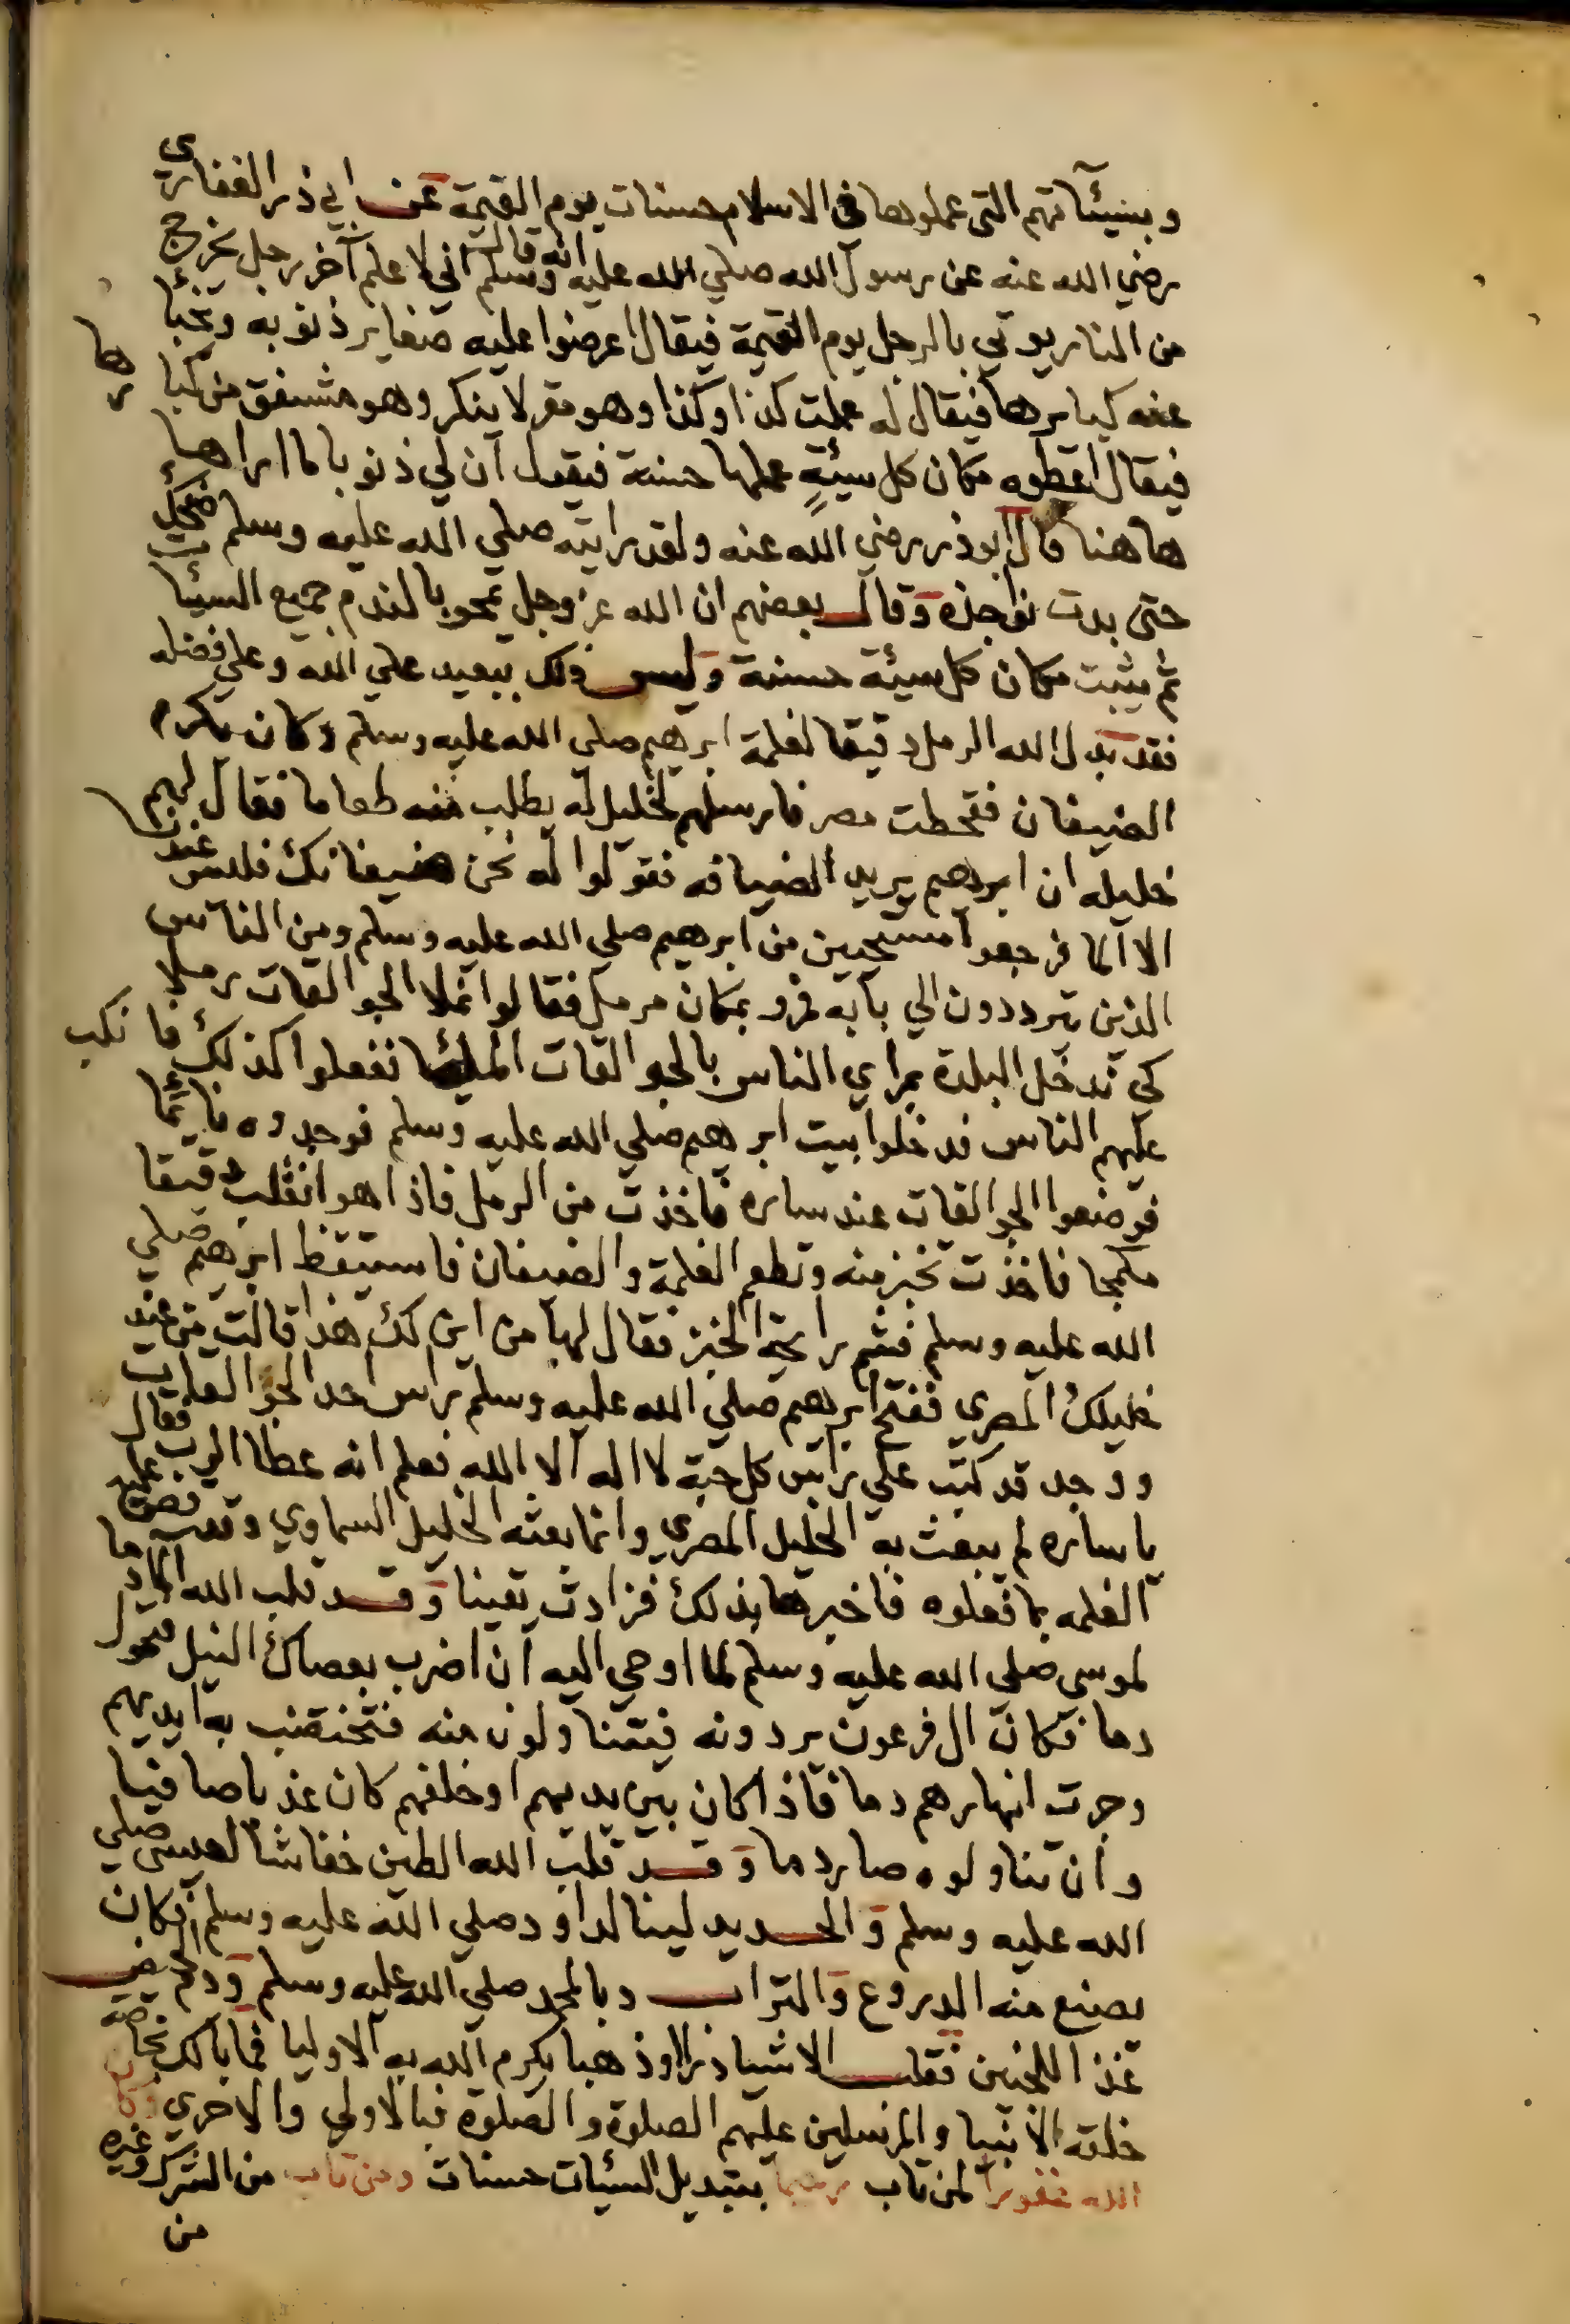 وبسيئآتهم التى عملوها فى الاسلام حسنات يوم القيمة عن ابي ذر الغفاري
رضي الله عنه عن رسول الله صلي الله عليه وسلم انه قال اني لاعلم آخر رجل يخرج
من النار يوتي بالرجل يوم القيمة فيقال اعرضوا عليه صغاير ذنوبه وتخبا
عنه كبايرها فيقال له عملت كذا وكذا وهو مقر لا ينكر وهو مشفق من كبايرها
فيقال اعطوه مكان كل سيئةٍ عملها حسنة فيقول ان لي ذنوبا ما اراها
هاهنا قال ابوذر رضي الله عنه ولقد رايته صلي الله عليه وسلم ضحك
حتى بدت نواجذه وقال بعضهم ان الله عز وجل يمحو بالندم جميع السيئات
ثم يثبت مكان كل سيئة حسنة وليس ذلك ببعيد علي الله وعلي فضله
فقد بدل الله الرمل دقيقا لغلمة ابرهيم صلى الله عليه وسلم وكان يكرم
الضيفان فقحطت مصر فارسلهم لخليل له يطلب منه طعاما فقال لهم
خليله ان ابرهيم يريد الضيافه فقولوا له نحن ضيفانك فليس عندنا
الا الما فرجعوا مستحيين من ابرهيم صلي الله عليه وسلم ومن الناس
الذين يترددون الي بابه فمروا بمكان مرمل فقالوا نملا الجوالقات رملا
كي ندخل البلدة بمراي الناس بالجوالقات الملئا ففعلوا كذلك فانكب
عليهم الناس فدخلوا بيت ابرهيم صلي الله عليه وسلم فوجدوه نائما
فوضعوا الجوالقات عند ساره فاخذت من الرمل فاذا هو انقلب دقيقا
فاخذت تخبز منه وتطعم الغلمة والضيفان فاستيقظ ابرهيم صلي
الله عليه وسلم فشم رايحة الخبز فقال لها من اين لك هذا قالت من عند
خليلك المصري ففتح ابرهيم صلي الله عليه وسلم راس احد الجوالقات
ووجد قد كتب علي راس كل حبة لا اله الا الله فعلم انه عطا الرب فقال
يا ساره لم يبعث به الخليل المصري وانما بعثه الخليل السماوي
الغلمه بما فعلوه فاخبرها بذلك فزادت يقينا وقد قلب الله الما دما
لموسى صلي الله عليه وسلم لما اوحي اليه ان اضرب بعصاك النيل فتحول
دما فكان ال فرعون يردونه فيتناولون منه فتختضب به ايديهم
وجرت انهارهم دما فاذا كان بين يديهم او خلفهم كان عذبا صافيا
وان تناولوه صار دما وقد قلب الله الطين خفاشا لعيسى صلي
الله عليه وسلم والحديد لينا لداود صلي الله عليه وسلم فكان
يصنع منه الدروع والتراب لمحمد صلي الله عليه وسلم ودم الحيض
غذا للجنين فقلب الاشيا ذهبا يكرم الله به الاوليا فما بالك بخاصة
خلقه الانبيا والمرسلين عليهم الصلوة والصلوة فبالاولي والاحري وكان
الله غفورا لمن تاب رحيما بتبديل السيئات حسنات ومن تاب من الشرك وغيره
من